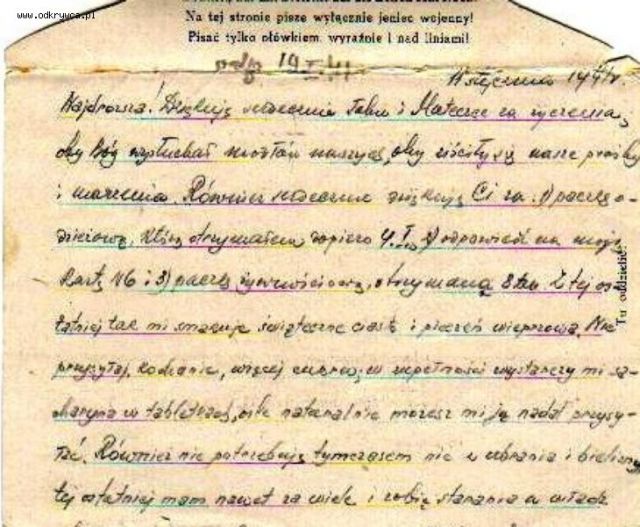 www.odkrywca.pl
Na tej stronie pisze wyłącznie jeniec wojenny!
Pisać tylko ołówkiem, wyraźnie i nad liniami!
odp 19 I 41
11 stycznia 1941 r.
Najdroższa! Dziękuję serdecznie Tobie i Mateczce za życzenia,
oby Bóg wysłuchał modłów naszych, oby ziściły się nasze prośby
i marzenia. Również serdecznie dziękuję Ci za: 1) paczkę o-
dzieżową, którą otrzymałem dopiero 4.I., 2) odpowiedź na moją
kartę N6 i 3) paczkę żywnościową, otrzymaną 8 bm. Z tej os-
tatniej tak mi smakuje świąteczne ciasto i pieczeń wieprzowa. Nie
przysyłaj, kochanie, więcej cukru, w zupełności wystarczy mi sa-
charyna w tabletkach, którą naturalnie możesz mi ją nadal przysy-
łać. Również nie potrzebuję tymczasem nic z ubrania i bielizny
tej ostatniej mam nawet za wiele i robię starania u władz
Tu oddzielić!